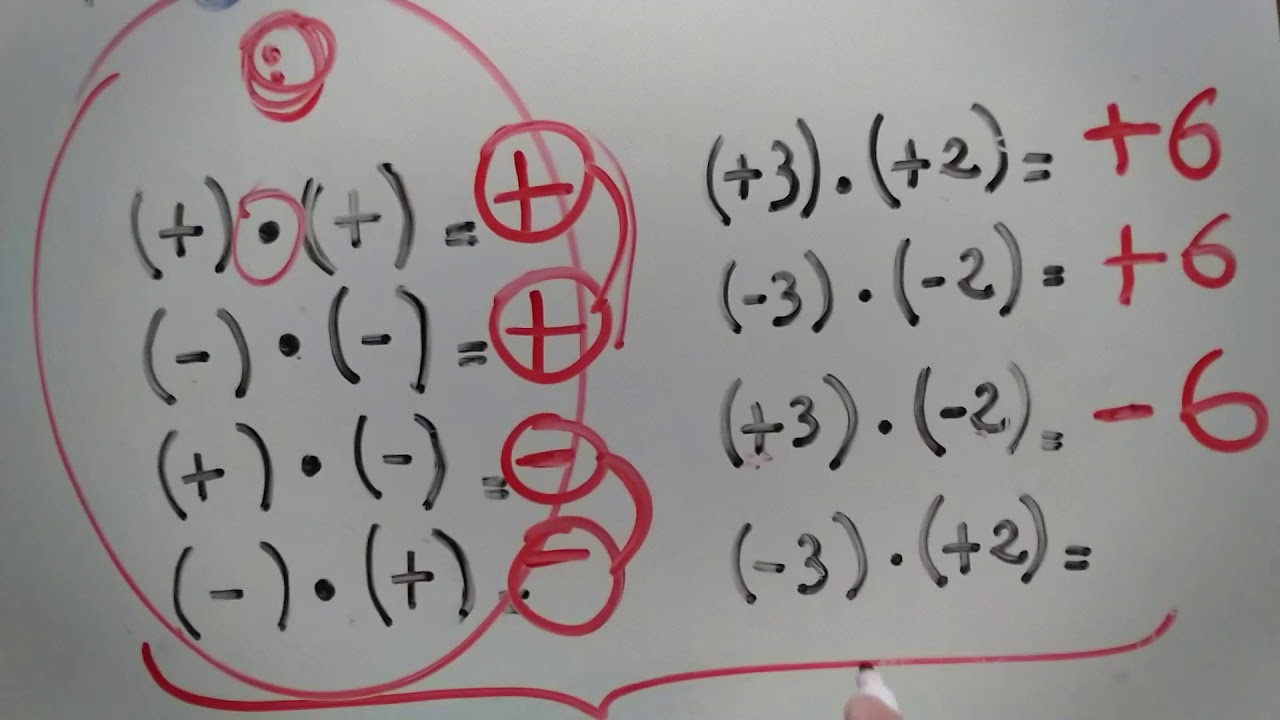 :
(+) · (+) = +
(-) · (-) = +
(+) · (-) = -
(-) · (+) = -
(+3) · (+2) = +6
(-3) · (-2) = +6
(+3) · (-2) = -6
(-3) · (+2) =